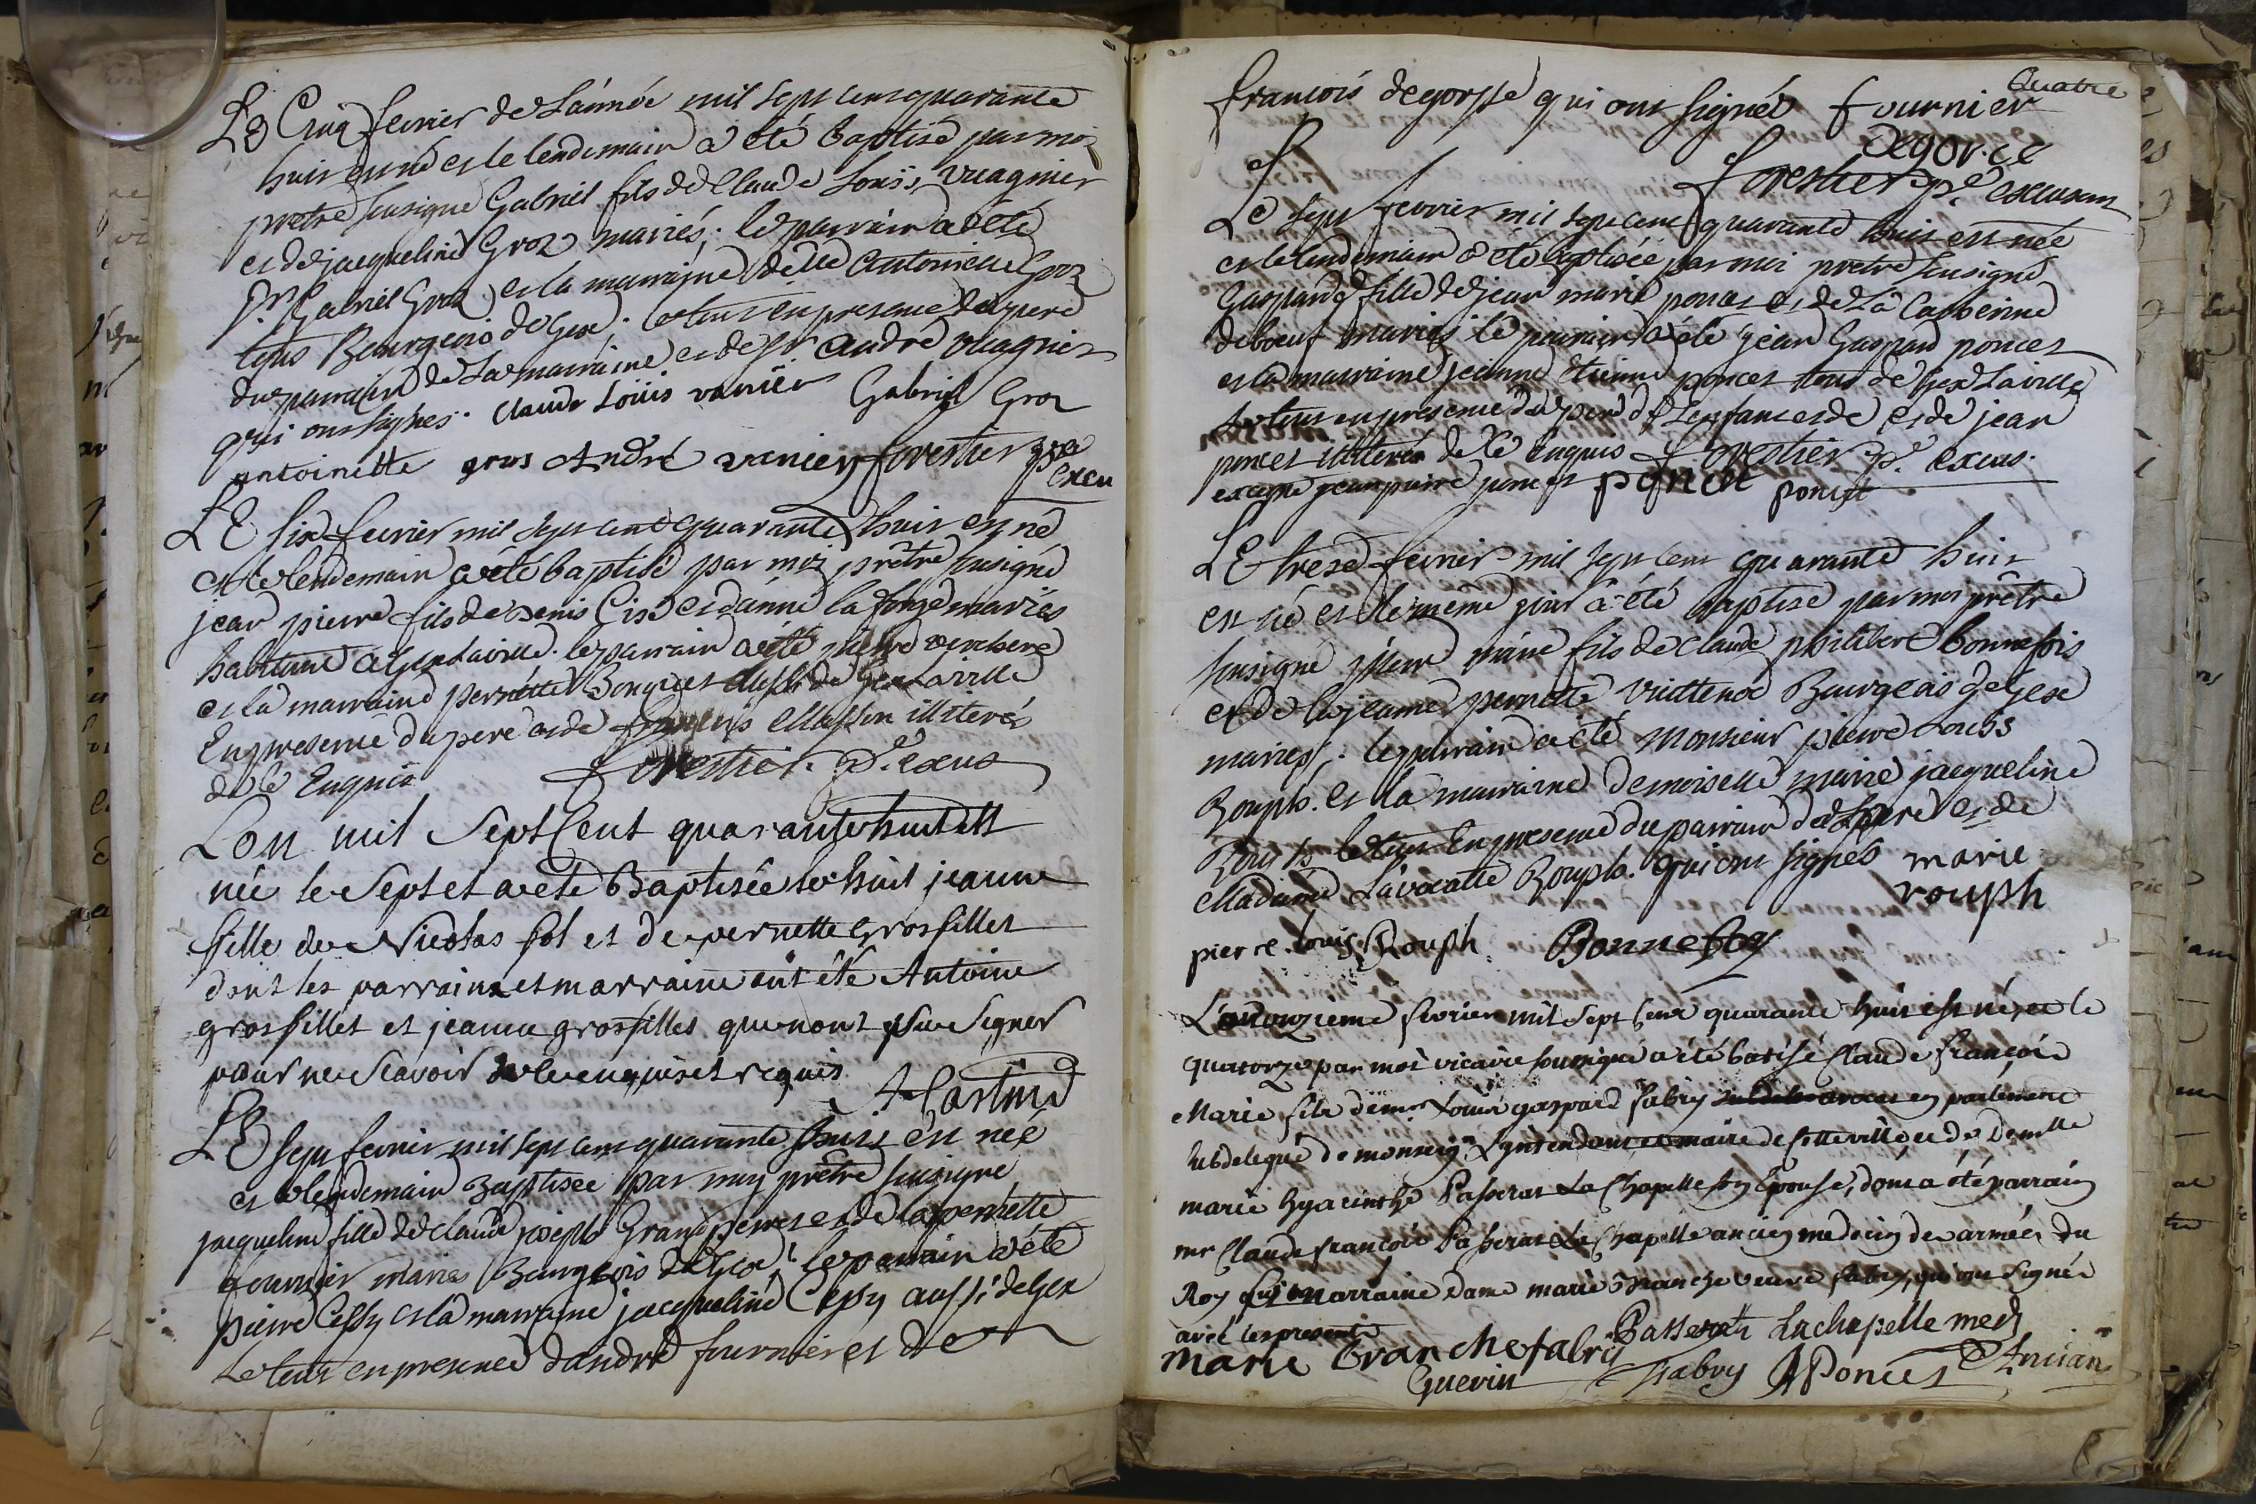 Le Cinq fevrier de L'année mil sept cent quarante
huit est né et le lendemain a été Baptisé par moi
prêtre sousigné Gabriel fils de Claude Louis vuagnier
et de jacqueline Groz mariés; le parrain a été
Sr. Gabriel Groz et la marraine delle antoinette Groz
tous Bourgeois de Gex. le tout en presence du pere
du parrain de La marraine et de Sr. andré vuagnier
qui ont signés. Claude Loüis vanier Gabriel Groz
antoinette gros André vanier forestier ptre
excu
LE six fevrier mil sept cent quarante huit est né
et le lendemain a été baptisé par moi prêtre sousigné
jean pierre fils de Denis Cise et d'anne la forge mariés
habitant a Gex la ville. le parrain a été pierre
et la marraine pernette aussi de Gex la ville
En presence du pere et de françois Masson illiterés
de le Enquis Forestier. p.e excus
L'on mil Sept Cent quarante huit est
née le Sept et a eté Baptisée le huit jeanne
fille de Nicolas fol et de pernette Grosfillet
dont les parrains et marraine ont été Antoine
grosfillet et jeanne grosfilles qui n'ont psu Signer
pour ne Scavoir de le enquis et requis
LE sept fevrier mil sept cent quarante huit est née
et le lendemain Baptisée par moy prêtre sousigné
jacqueline fille de Claude joseph Grand perret et de la pernette
fournier mariés Bourgeois de Gex; le parrain a été
pierre Cessy et la marraine jacqueline Cessy aussi de Gex
Le tout en presence d'andré fournier et de
Quatre
françois degorsse qui ont signés fournier
degorce
Forestier p.e excusant
Le sept fevrier mil sept cent quarante huit est née
et le lendemain a été baptisée par moi prêtre sousigné
Gasparde fille de jean marie poncet et de La Catherine
deboeuf mariés le parrain a été jean Gaspard poncet
et la marraine jeanne étienne poncet tous de Gex La ville
Le tout en presence du pere de L'enfant et de et de jean
poncet illiterés de Le Enquis Forestier p.e excus.
excepté jean pierre poncet poncet poncet
LE treze fevrier mil sept cent quarante huit
est né et le meme jour a été baptisé par moi prêtre
sousigné pierre marie fils de Claude philibert bonnefois
et de la jeanne pernette Bourgeois de Gex
mariés; le parrain a été Monsieur pierre Louiss
Rouph. et la marraine demoiselle marie jacqueline
Rouph le tout En presence du parrain de Le pere et de
Madame L'avocatte Rouph. qui ont signés marie
rouph
pierre. louis. Rouph. Bonnefoy
L'onzieme fevrier mil sept Cent quarante huit est né, et le
quatorze par moi vicaire sousigné a été batisé Claude françois
Marie fils de mr Louis gaspard fabry en parlement
subdelegué de monseigr L'intendant et maire de cette ville et de Demlle
marie hyacinthe Passerat La Chapelle son Epouse, dont a été parrain
mr Claude françois Passerat La Chapelle ancien medecin des armées du
Roy et marraine Dame marie Branche veuve fabry, qui ont signés
avec les presents
marie Branche fabry Passerat Lachapelle med
Guerin fabry Poncet